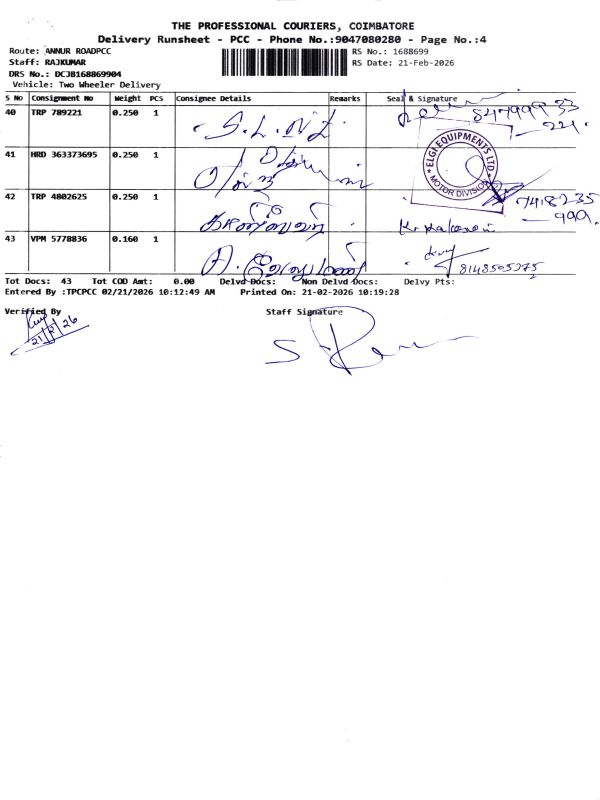 THE PROFESSIONAL COURIERS, COIMBATORE
Delivery Runsheet - PCC - Phone No.:9047080280 - Page No.:4
Route: ANNUR ROADPCC
RS No.: 1688699
Staff: RAJKUMAR
RS Date: 21-Feb-2026
DRS No.: DCJB168869904
Vehicle: Two Wheeler Delivery
S No Consignment No Weight PCS Consignee Details Remarks Seal & Signature
40 TRP 789221 0.250 1
41 HRD 363373695 0.250 1
ELGI EQUIPMENTS LTD
MOTOR DIVISION
42 TRP 4802625 0.250 1
7418235
999.
43 VPM 5778836 0.160 1
8148505275
Tot Docs: 43 Tot COD Amt: 0.00 Delvd Docs: Non Delvd Docs: Delvy Pts:
Entered By :TPCPCC 02/21/2026 10:12:49 AM Printed On: 21-02-2026 10:19:28
Verified By
Staff Signature
21/2/26